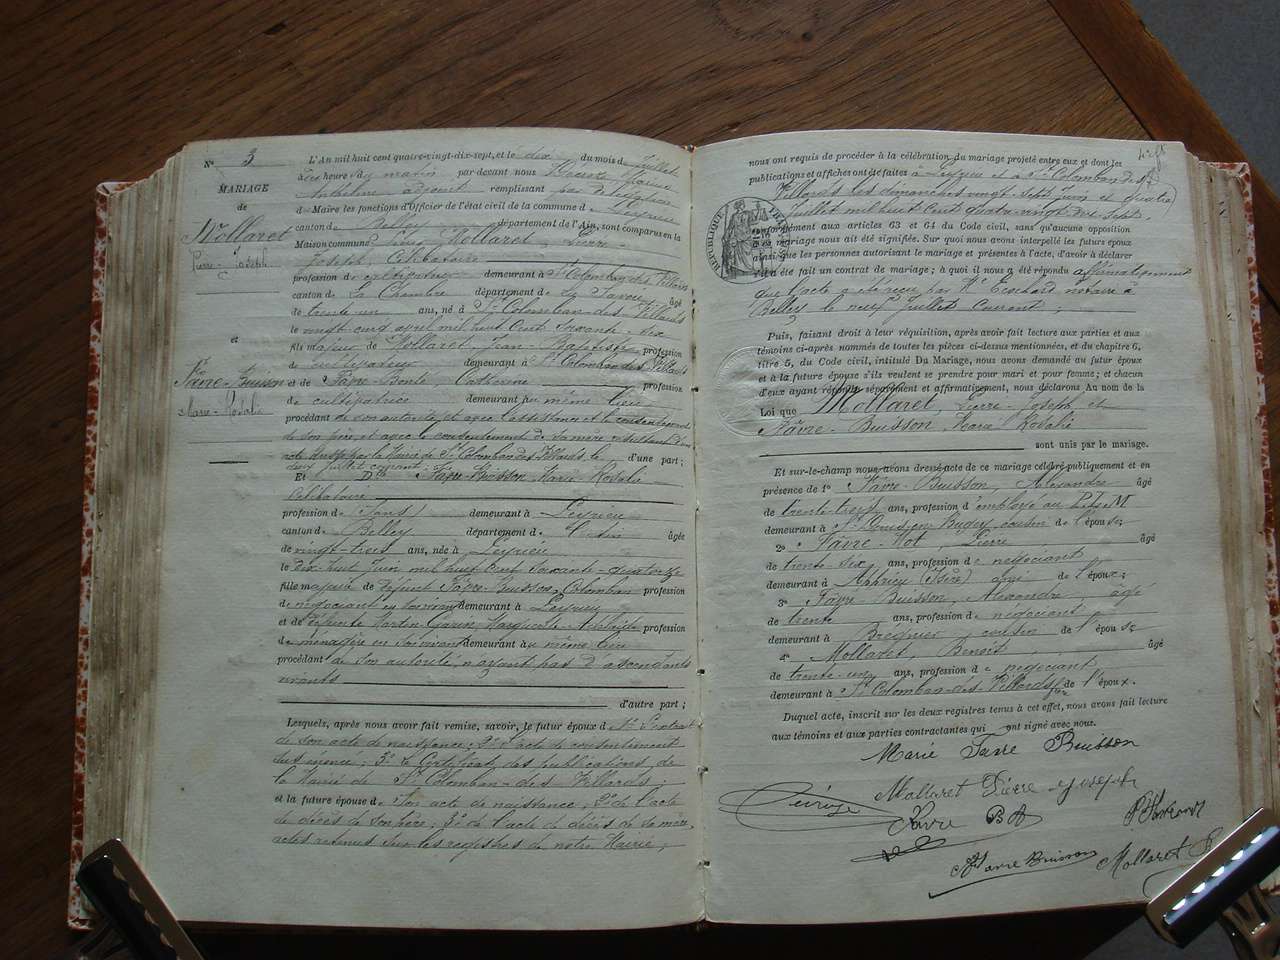 N° 3
MARIAGE
de
Mollaret
Pierre-Joseph
et
Favre-Buisson
Marie-Rosalie
L'An mil huit cent quatre-vingt-dix-sept, et le dix du mois de Juillet
à heure du matin par devant nous Maire
adjoint remplissant par
de Maire les fonctions d'Officier de l'état civil de la commune de Peyrieu
canton de Belley département de l'Ain, sont comparus en la
Maison commune Mollaret, Pierre-
Joseph, Célibataire
profession de cultivateur demeurant à St Colomban des Villards
canton de La Chambre département de La Savoie âgé
de trente un ans, né à St Colomban-des-Villards
le vingt cinq avril mil huit cent soixante-six
fils majeur de Mollaret, Jean-Baptiste profession
de cultivateur demeurant à St Colomban des Villards
et de Favre-Bonté, Catherine profession
de cultivatrice demeurant au même lieu
procédant de son autorité et avec l'assistance et le consentement
de son père, et avec le consentement de sa mère résultant d'un
acte dressé par la Mairie de St Colomban des Villards, le
deux Juillet courant; d'une part;
Et Dlle Favre-Buisson, Marie-Rosalie
Célibataire
profession de Sans demeurant à Peyrieu
canton de Belley département de l'Ain âgée
de vingt-trois ans, née à Peyrieu
le dix huit Juin mil huit cent soixante-quatorze
fille majeure de défunt Favre-Buisson, Colomban profession
de négociant en son vivant demeurant à Peyrieu
et de défunte Martin-Garin, Marguerite profession
de ménagère en son vivant demeurant au même lieu
procédant de son autorité, n'ayant pas d'ascendants
vivants
d'autre part;
Lesquels, après nous avoir fait remise, savoir, le futur époux d 1° l'extrait
de son acte de naissance; 2° l'acte de consentement
de sa mère; 3° le certificat des publications de
la Mairie de St Colomban-des-Villards;
et la future épouse de Son acte de naissance; 2° de l'acte
de décès de son père; 3° de l'acte de décès de sa mère,
actes retenus sur les registres de notre Mairie;
nous ont requis de procéder à la célébration du mariage projeté entre eux et dont les
publications et affiches ont été faites à Peyrieu et à St Colomban des
Villards les dimanches vingt-sept Juin et quatre
Juillet mil huit cent quatre vingt dix sept.
RÉPUBLIQUE
conformément aux articles 63 et 64 du Code civil, sans qu'aucune opposition
au dit mariage nous ait été signifiée. Sur quoi nous avons interpellé les futurs époux
ainsi que les personnes autorisant le mariage et présentes à l'acte, d'avoir à déclarer
s'il a été fait un contrat de mariage; à quoi il nous a été répondu affirmativement
que l'acte a été reçu par Me notaire à
Belley le neuf Juillet courant;
Puis, faisant droit à leur réquisition, après avoir fait lecture aux parties et aux
témoins ci-après nommés de toutes les pièces ci-dessus mentionnées, et du chapitre 6,
titre 5, du Code civil, intitulé Du Mariage, nous avons demandé au futur époux
et à la future épouse s'ils veulent se prendre pour mari et pour femme; et chacun
d'eux ayant répondu séparément et affirmativement, nous déclarons Au nom de la
Loi que Mollaret, Pierre-Joseph et
Favre-Buisson, Marie Rosalie
sont unis par le mariage.
Et sur-le-champ nous avons dressé acte de ce mariage célébré publiquement et en
présence de 1° Favre-Buisson, Alexandre âgé
de trente trois ans, profession d'employé au P.L.M
demeurant à cousin de l'épouse;
2° Favre-Mot, Pierre âgé
de trente-six ans, profession de négociant
demeurant à Aphrieu (Isère) ami de l'époux;
3° Favre Buisson, Alexandre âgé
de trente ans, profession de négociant
demeurant à Brégnier cousin de l'épouse
4° Mollaret, Benoit âgé
de trente-un ans, profession de négociant
demeurant à St Colomban-des-Villards frère de l'époux.
Duquel acte, inscrit sur les deux registres tenus à cet effet, nous avons fait lecture
aux témoins et aux parties contractantes qui ont signé avec nous.
Marie Favre Buisson
Mollaret Pierre Joseph
Favre BA
Favre Buisson
Mollaret B